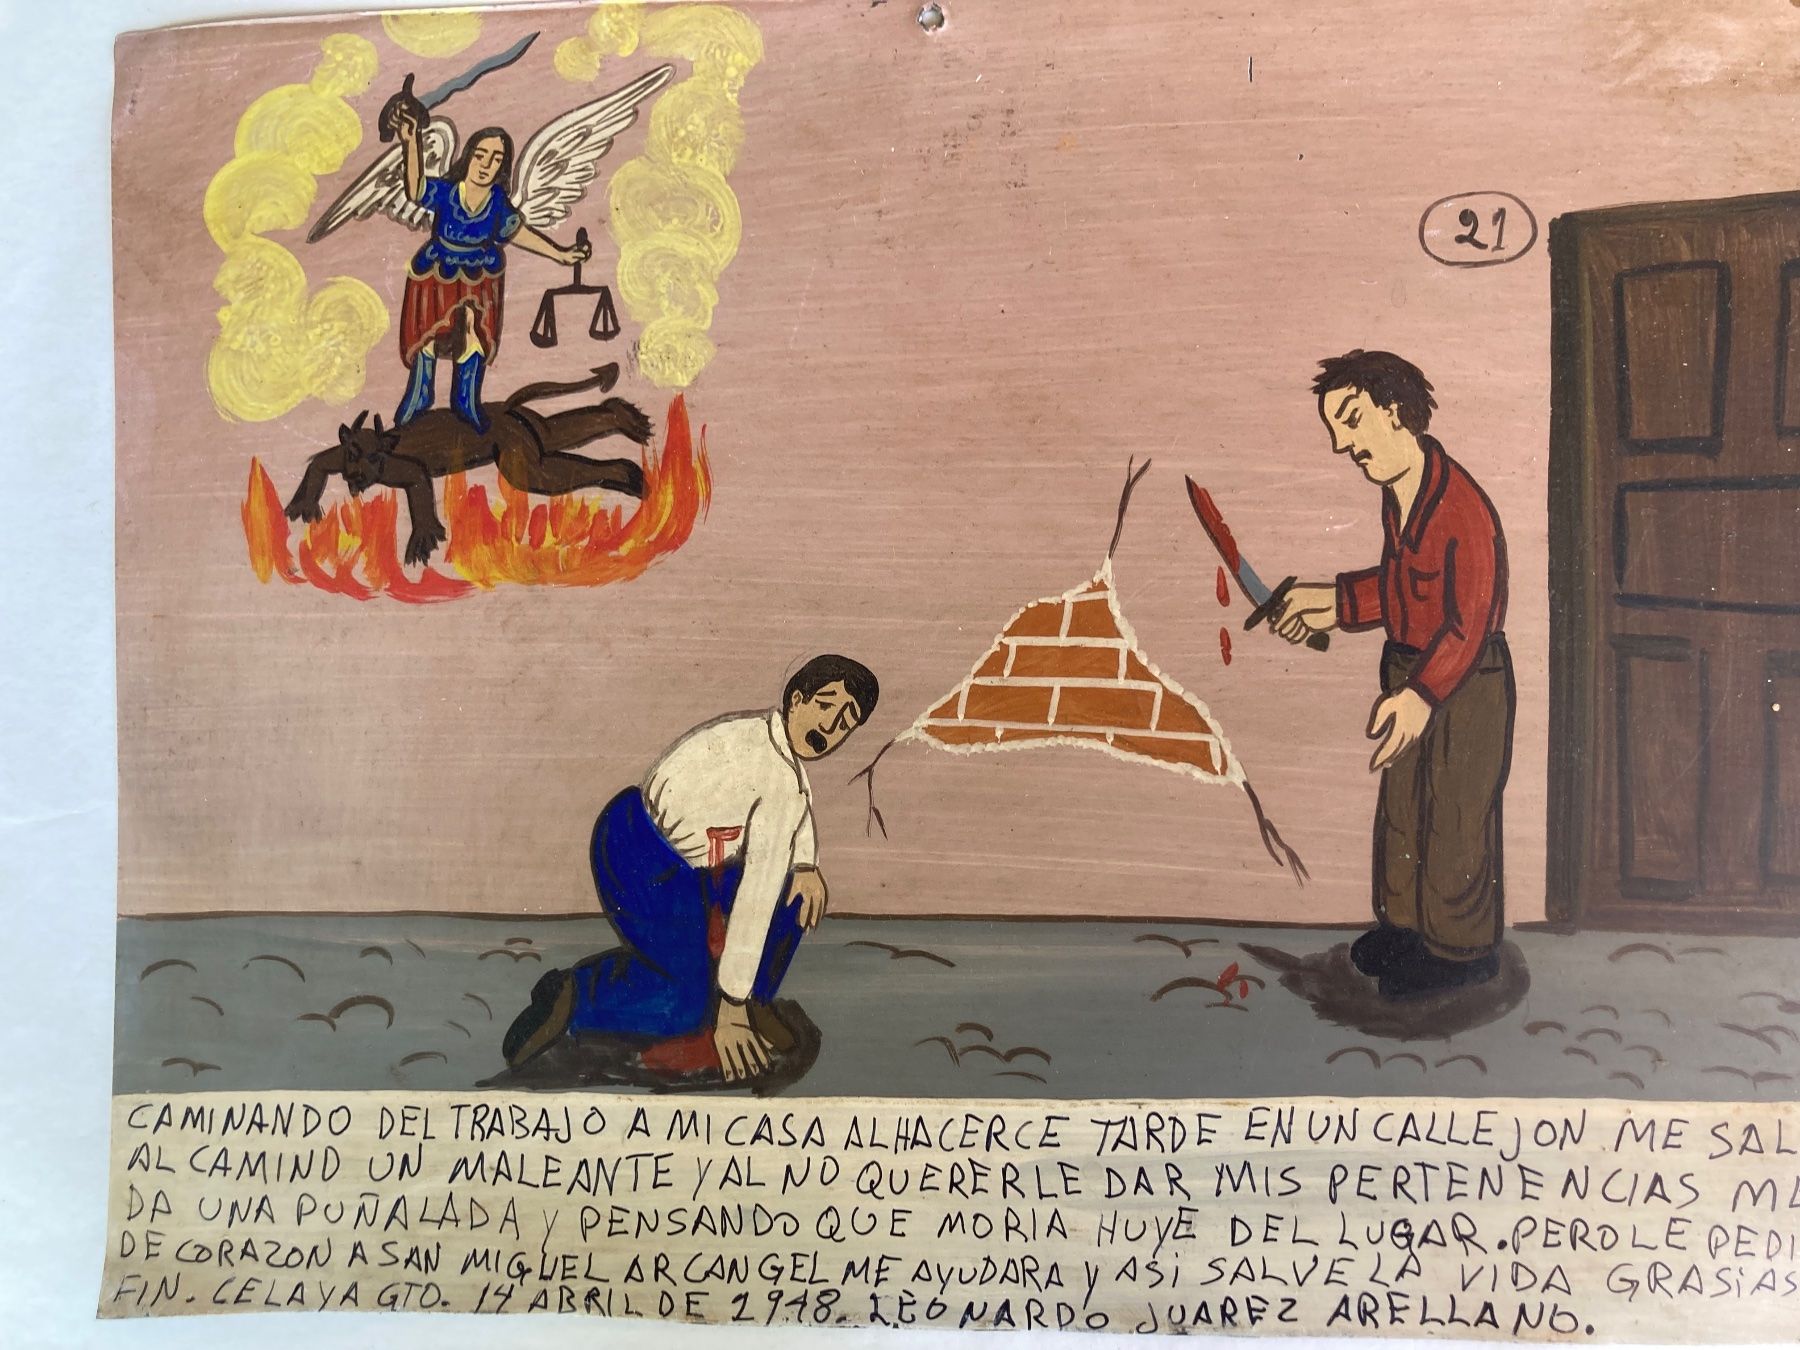 21
CAMINANDO DEL TRABAJO A MI CASA AL HACERCE TARDE EN UN CALLEJON ME SAL
AL CAMINO UN MALEANTE Y AL NO QUERERLE DAR MIS PERTENENCIAS ME
DA UNA PUÑALADA Y PENSANDO QUE MORIA HUYE DEL LUGAR. PERO LE PEDI
DE CORAZON A SAN MIGUEL ARCANGEL ME AYUDARA Y ASI SALVE LA VIDA GRASIAS
FIN. CELAYA GTO. 14 ABRIL DE 1948. LEONARDO JUAREZ ARELLANO.